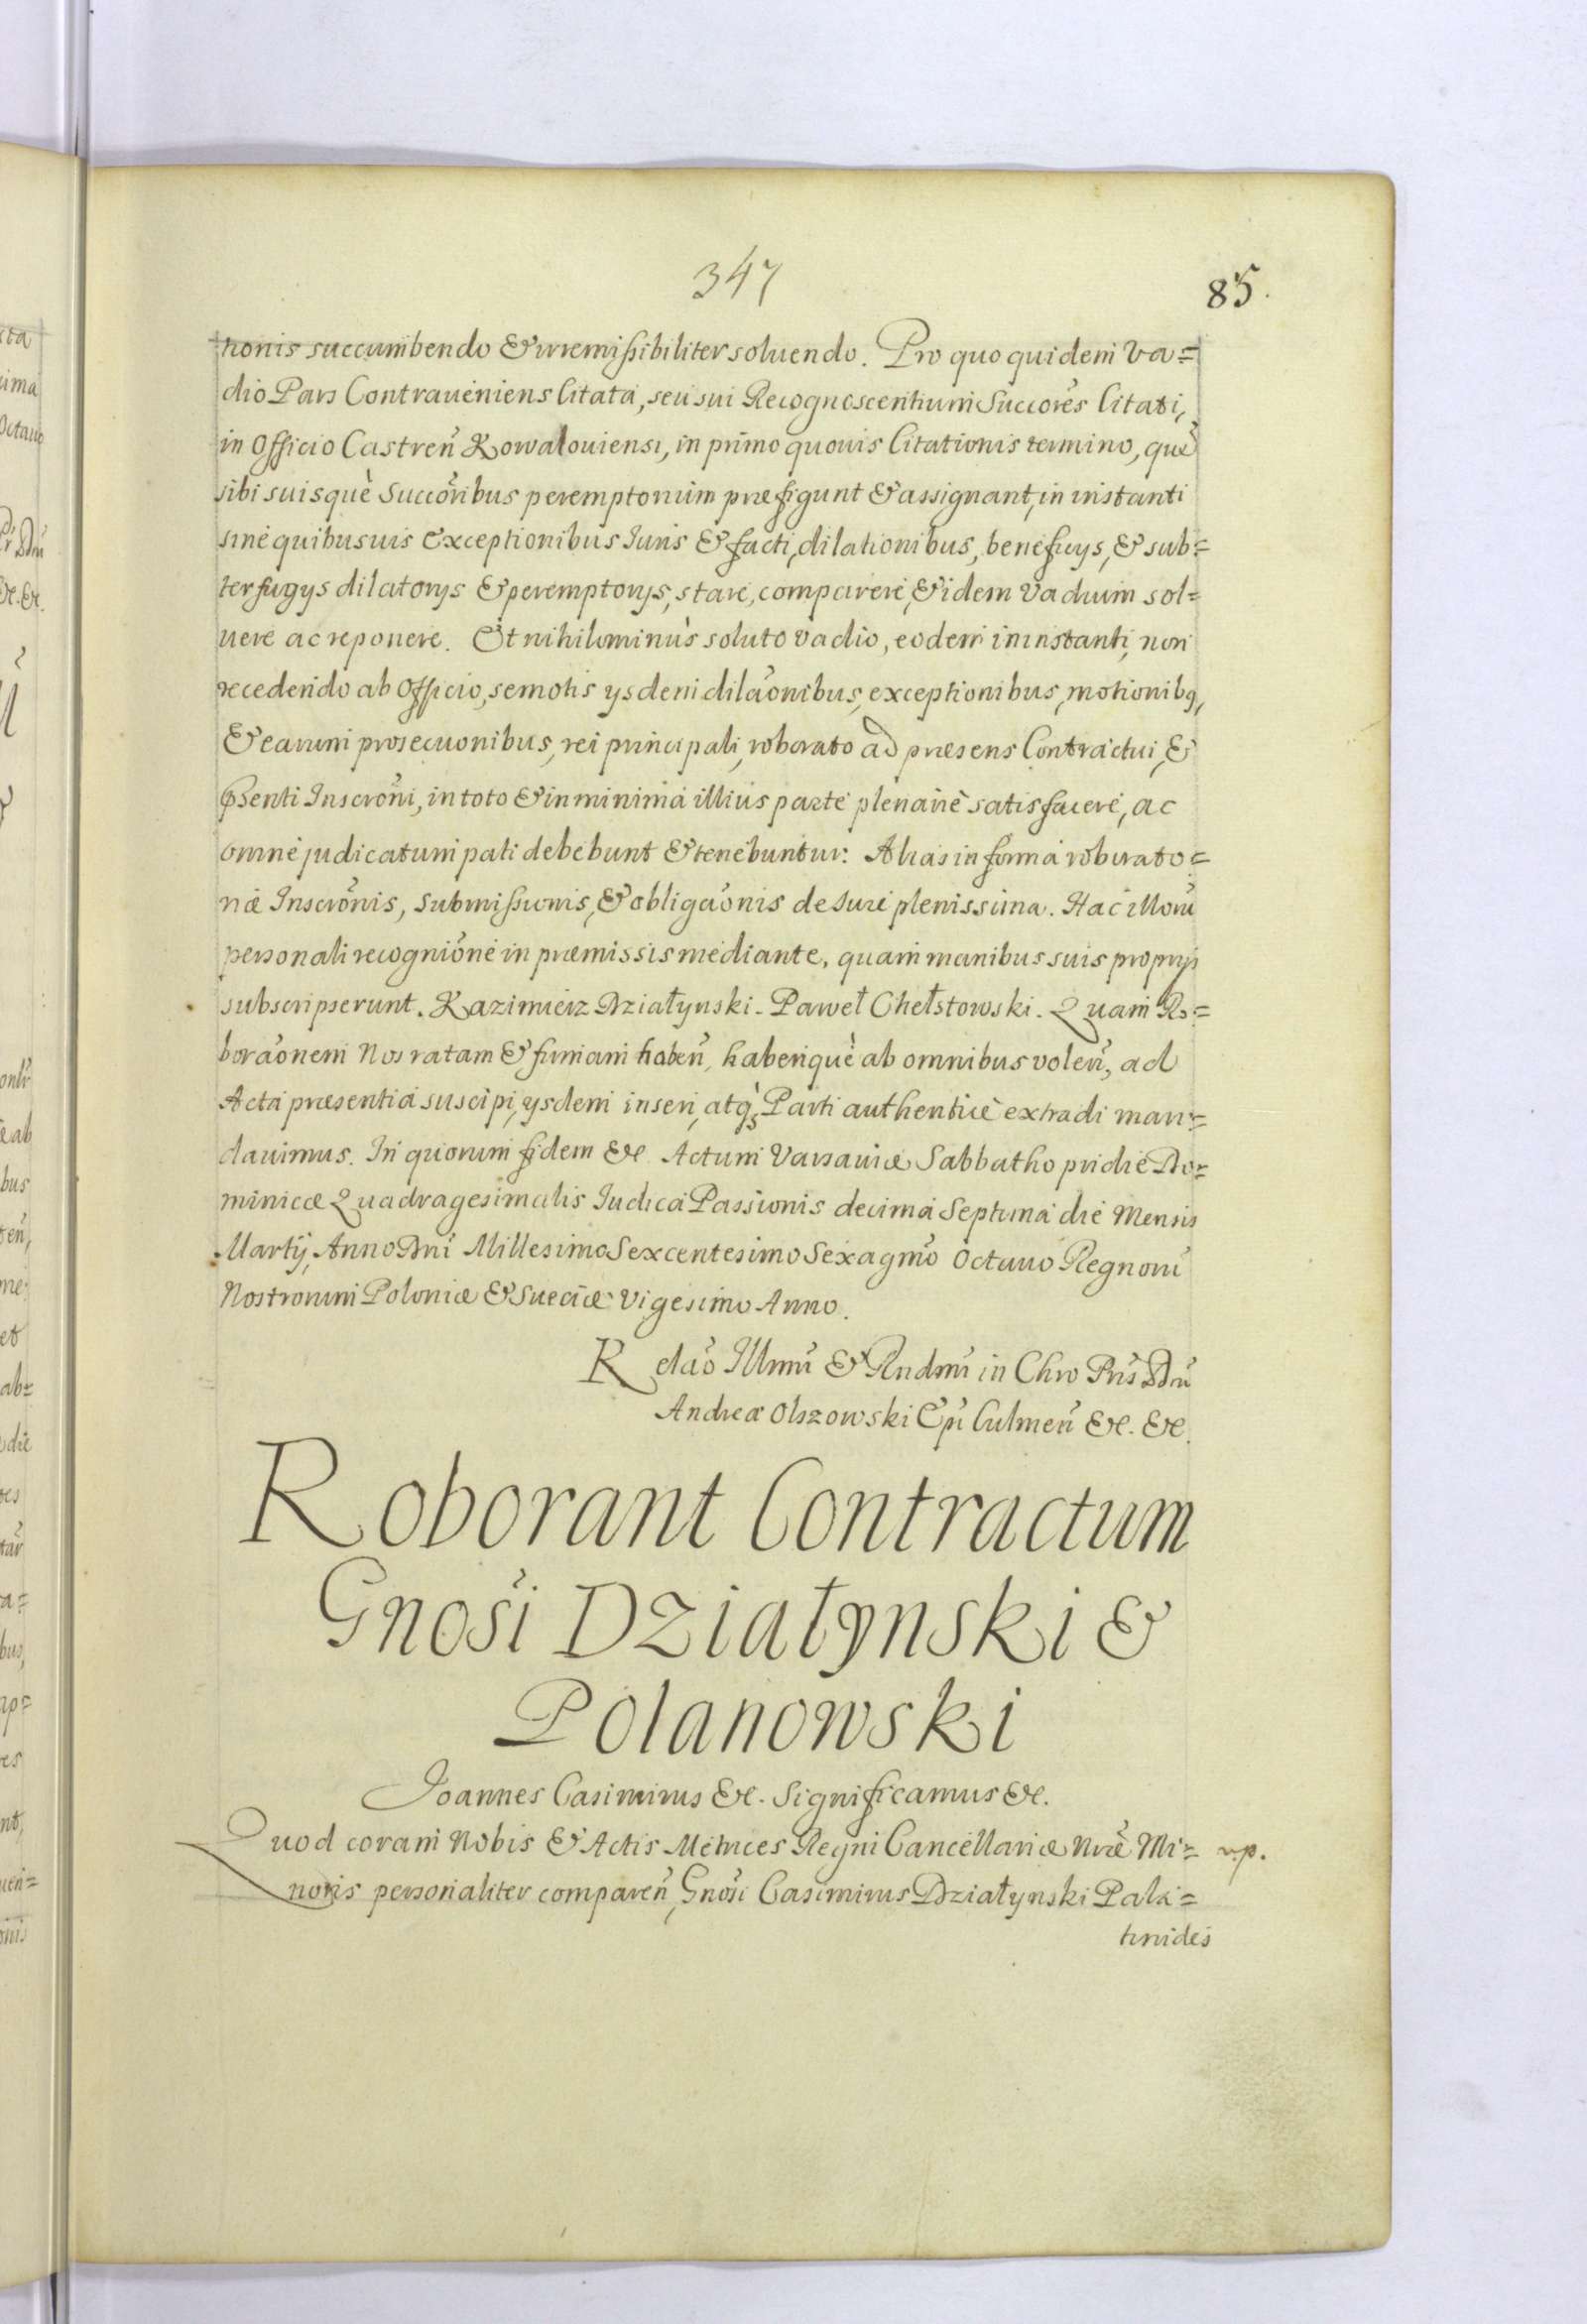 347
85.
tionis succumbendo & irremissibiliter soluendo. Pro quo quidem Va=
dio Pars Contraueniens Citata, seu sui Recognoscentium Succores̃ Citati,
in Officio Castren̄ Kowalouiensi, in primo quouis Citationis termino, quẽ
sibi suisquè Succoribus̃ peremptorium præfigunt & assignant, in instanti
sine quibusuis Exceptionibus Iuris & facti, dilationibus, beneficijs, & sub=
terfugijs dilatorijs & peremptorijs, stare, comparere, & idem Vadium sol=
uere ac reponere. Et nihilominùs soluto vadio, eodem in instanti, non
recedendo ab Officio, semotis ysdem dilaõnibus, exceptionibus, motionibq,
& earum prosecuonibus, rei principali, roborato ad præsens Contractui, &
pñsenti Inscroñi, in toto & in minima illius parte plenariè satisfacere, ac
omne judicatum pati debebunt & tenebuntur: Alias in forma roborato=
riæ Inscroñis, submissionis, & obligaõnis de Iure plenissima. Hac illorũ
personali recogniõne in præmissis mediante, quam manibus suis proprijs
subscripserunt. Kazimierz Działynski. Paweł Chełstowski. Quam Ro=
boraõnem Nos ratam & firmam haben̄, haberiquè ab omnibus volen̄, ad
Acta præsentia suscipi, ysdem inseri, atq̀, Parti authenticè extradi man=
dauimus. In quorum fidem &c. Actum Varsauiæ Sabbatho pridie Do=
minicæ Quadragesimalis Iudica Passionis decima Septima die Mensis
Martij, Anno Dni Millesimo Sexcentesimo Sexagmõ Octauo Regnorũ
Nostrorum Poloniæ & Sueciæ Vigesimo Anno.
Relaõ Illmi & Rndmi in Chro Pris̃ Dnĩ
Andreæ Olszowski Epĩ Culmen̄ &c. &c.
Roborant Contractum
Gnosĩ Działynski &
Polanowski
Joannes Casimirus &c. Significamus &c.
Quod coram Nobis & Actis Metrices Regni Cancellariæ Nræ̃ Mi= rp.
noris personaliter comparen̄, Gnosĩ Casimirus Działynski Pala=
tinides